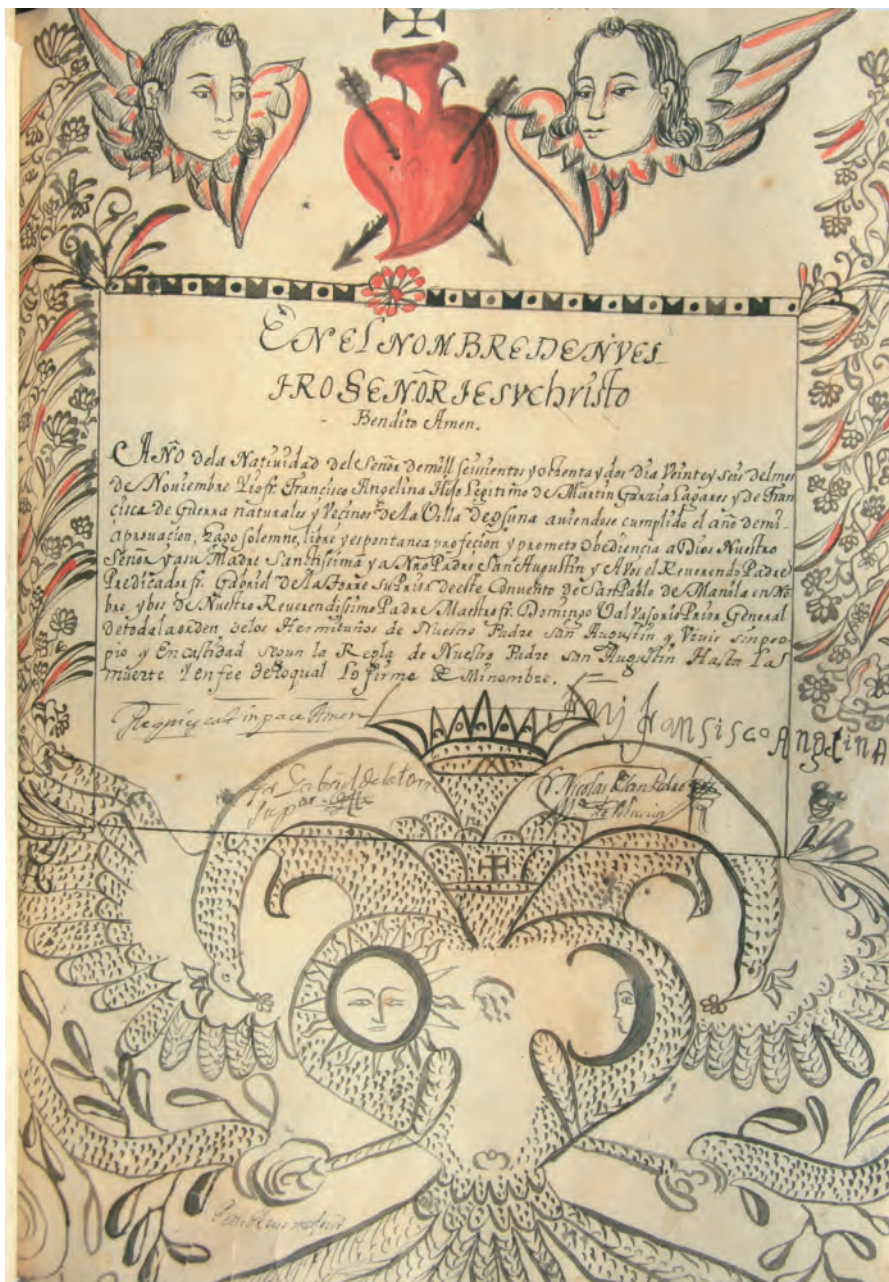 EN EL NOMBRE DE NVES
TRO SEÑOR IESVChristo
Bendito Amen.
AÑO dela Natiuidad del Señor de mill seisientos y ochenta y dos Dia Veinte y seis del mes
de Nouiembre Yo fr. Francisco Angelina Hijo Legitimo de Martin Garzia Lagares y de Fran
cisca de Guerra naturales y Vecinos de la Villa de osuna auiendose cumplido el año de mi
aprouacion, Hago solemne, libre y espontanea profecion y prometo Obediencia a Dios Nuestro
Señor y a su Madre Sanctissima y a Nro Padre San Augustin y A vos el Reuerendo Padre
Predicador fr. Gabriel de la Torre su Prior de este Conuento de San Pablo de Manila en No
bre, y bes de Nuestro Reuerendissimo Padre Maestro fr. Domingo Valvasorio Prior General
de toda la orden, de los Hermitaños de Nuestro Padre san Augustin y Viuir sin pro
pio y En castidad segun la Regla de Nuestro Padre san Augustin Hasta La
muerte Y en fee de lo qual Lo firme de Mi nombre.
Requiescat in pace Amen
Fray Fransisco Angelina
fr Gabriel de la torre
fr Nicolas de San Pedro